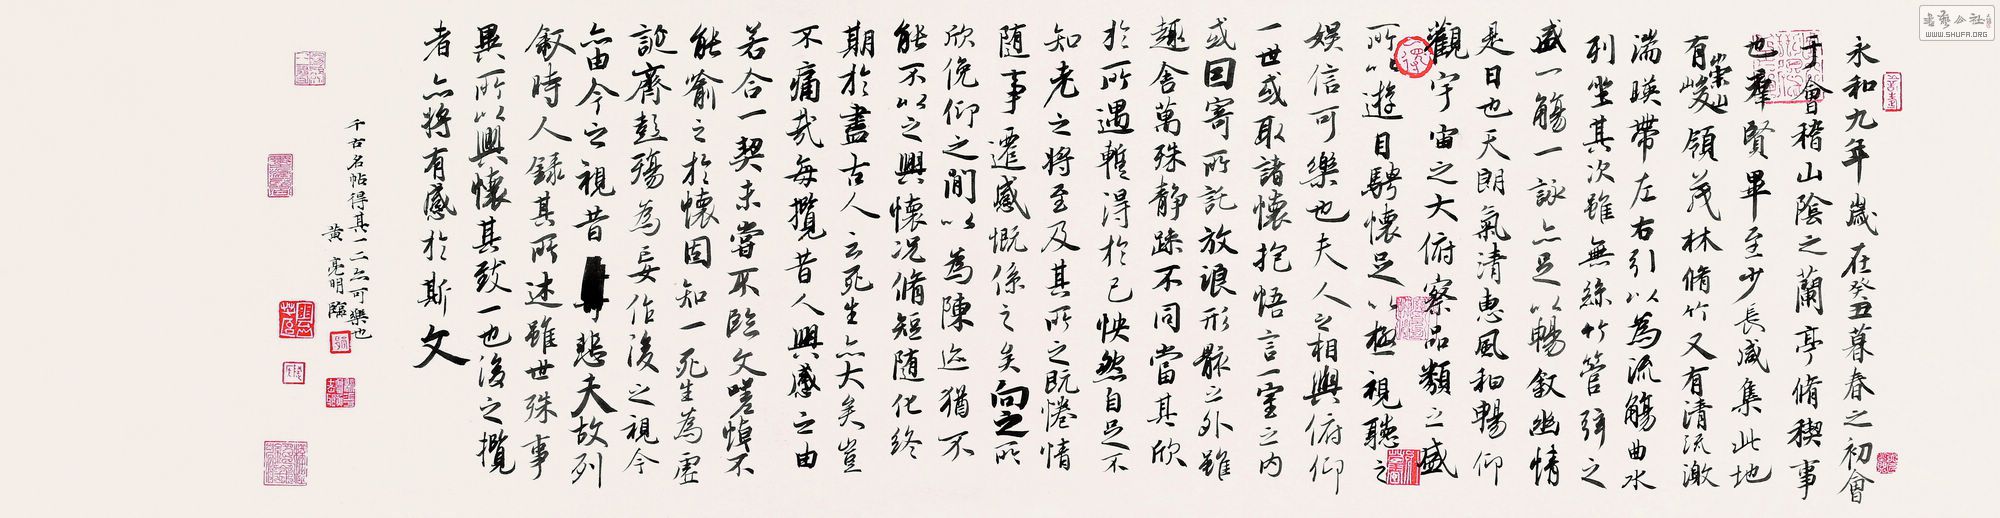 永和九年歲在癸丑暮春之初會
于會稽山陰之蘭亭脩稧事
也羣賢畢至少長咸集此地
有崇山峻領茂林脩竹又有清流激
湍暎帶左右引以為流觴曲水
列坐其次雖無絲竹管弦之
盛一觴一詠亦足以暢敘幽情
是日也天朗氣清惠風和暢仰
觀宇宙之大俯察品類之盛
所以遊目騁懷足以極視聽之
娛信可樂也夫人之相與俯仰
一世或取諸懷抱悟言一室之內
或因寄所託放浪形骸之外雖
趣舍萬殊靜躁不同當其欣
於所遇暫得於己怏然自足不
知老之將至及其所之既惓情
隨事遷感慨係之矣向之所
欣俛仰之閒以為陳迹猶不
能不以之興懷況脩短隨化終
期於盡古人云死生亦大矣豈
不痛哉每攬昔人興感之由
若合一契未嘗不臨文嗟悼不
能喻之於懷固知一死生為虛
誕齊彭殤為妄作後之視今
亦由今之視昔悲夫故列
敘時人錄其所述雖世殊事
異所以興懷其致一也後之攬
者亦將有感於斯文
千古名帖得其一二亦可樂也
黃亮明臨
書藝公社
WWW.SHUFA.ORG